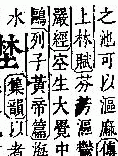 之池可以漚麻傳
上林賦芬芳漚
嚴經空生大覺中
鷗列子黃帝篇海
水
集韻以者